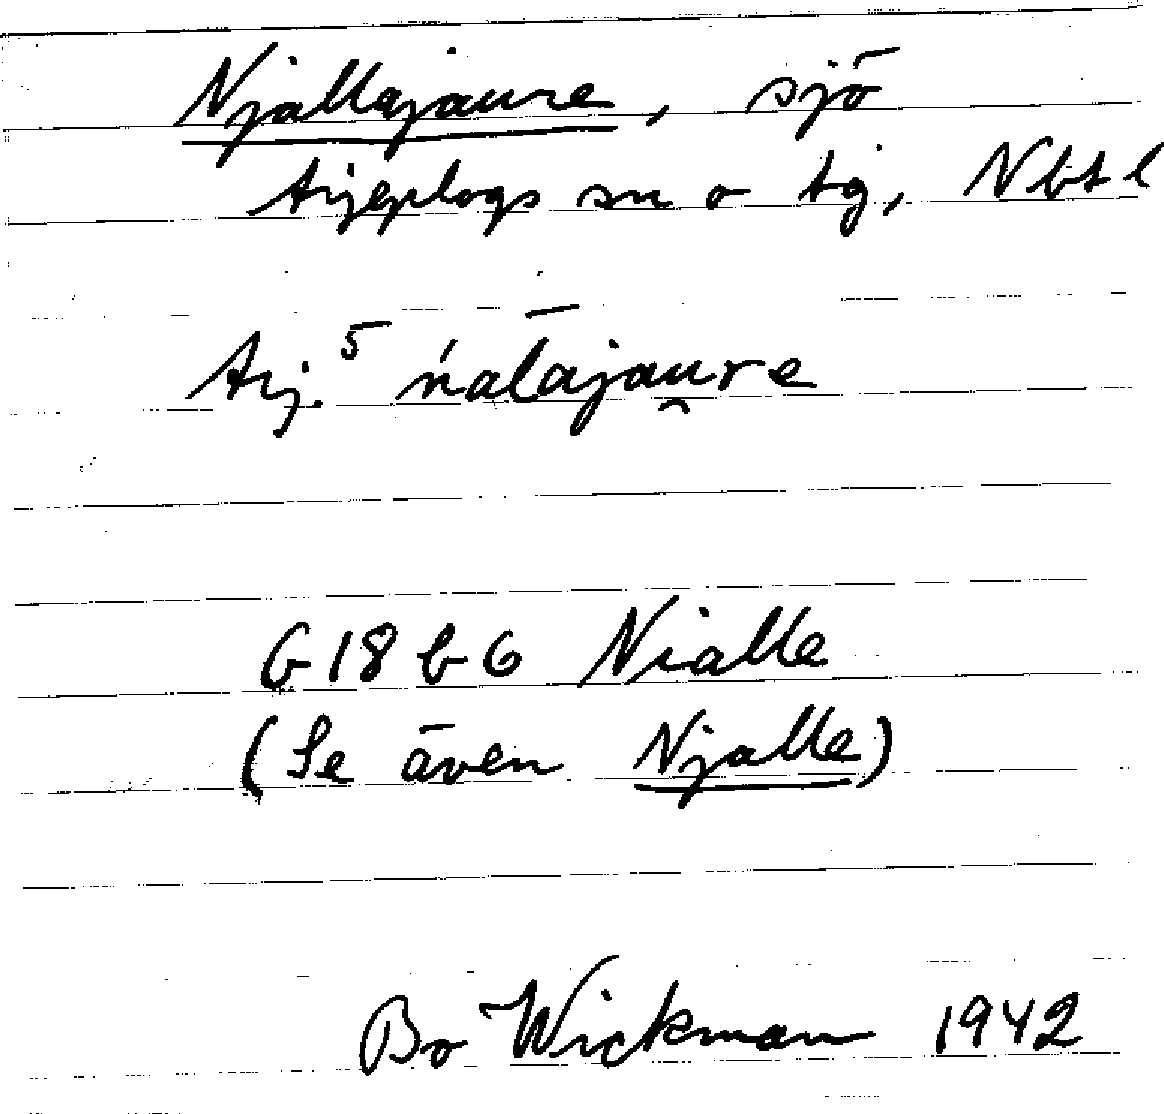 Njallajaure, sjö
Arjeplogs sn o tg, Nbt l
Arj.⁵ ńalājau̯re
G 18 b G Nialle
(Se även Njalle)
Bo Wickman 1942